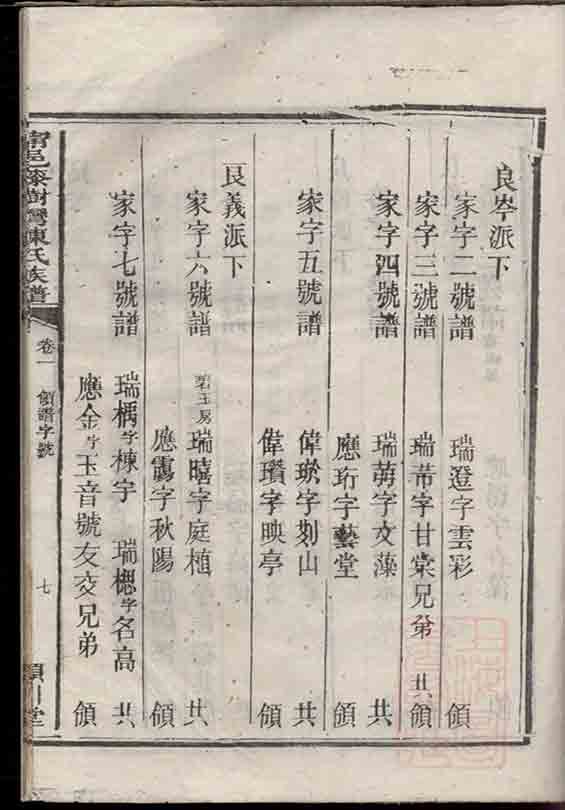 良岑派下
家字二號譜 瑞澄字雲彩 領
家字三號譜 瑞芾字甘棠兄弟 共領
家字四號譜 瑞蒭字文藻 共
應珩字藝堂 領
家字五號譜 偉琁字剡山 共
偉瓚字映亭 領
良義派下
家字六號譜 碧玉房 瑞暿字庭植 共
應靄字秋陽 領
家字七號譜 瑞楀字棟宇 瑞楒字名高 共
應金字玉音號友交兄弟 領
甯邑漆樹灣陳氏族譜 卷一 領譜字號 七 潁川堂